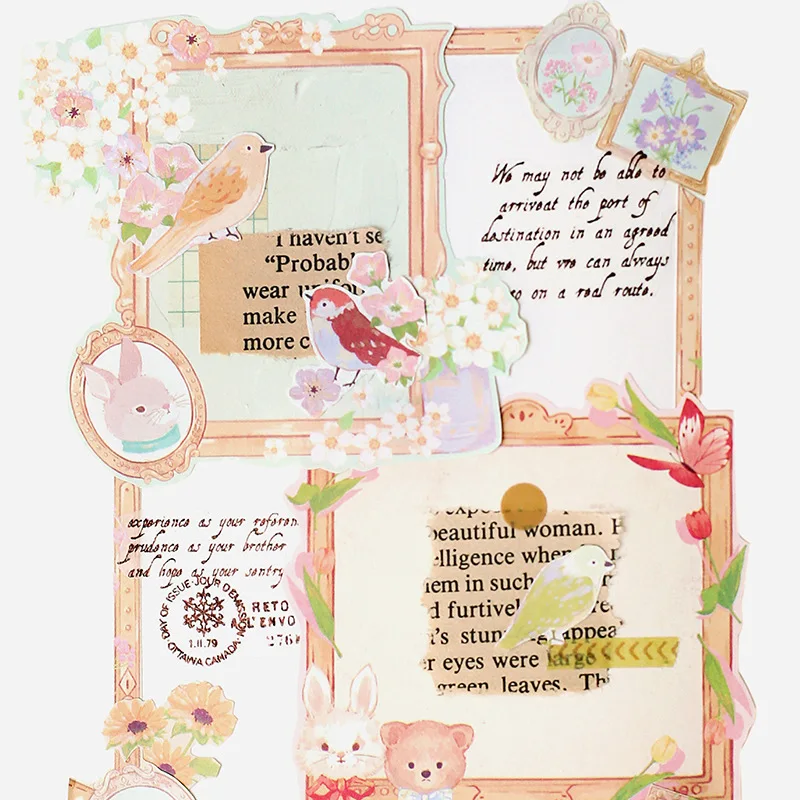 I haven't se
"Probabl
wear unifor
make
more c
We may not be able to
arriveat the port of
destination in an agreed
time, but we can always
go on a real route.
experience as your referen
prudence as your brother
and hope as your sentry
DAY OF ISSUE·JOUR D'EMISSION
1.II.79
OTTAWA CANADA
RETO
A L'ENVO
276
beautiful woman. H
elligence when
em in such
d furtivel
's stun
appea
er eyes were large
green leaves. Th